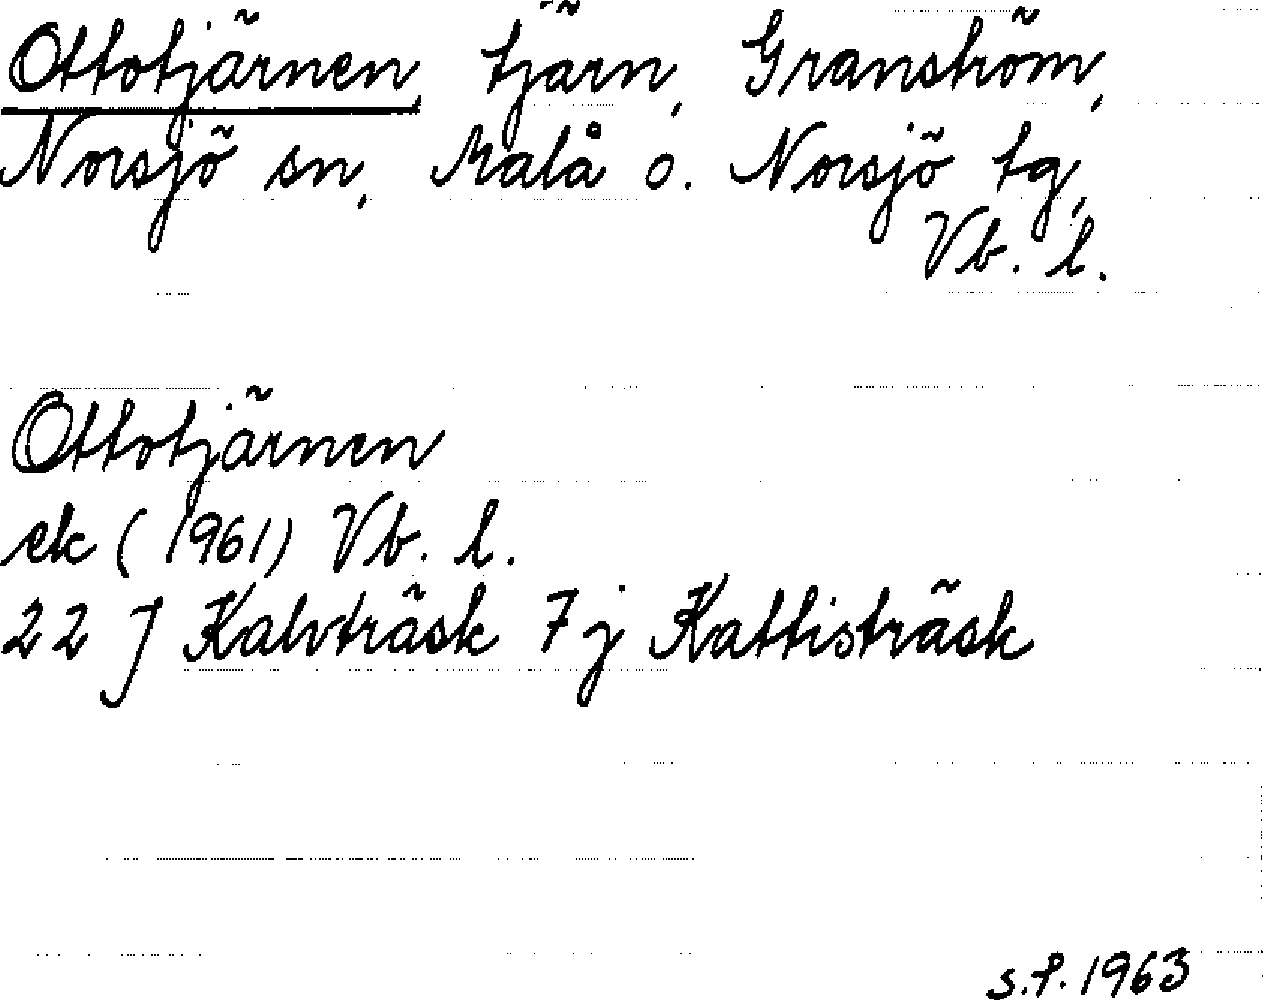 Ottotjärnen, tjärn, Granström,
Norsjö sn, Malå o. Norsjö tg,
Vb. l.
Ottotjärnen
ek (1961) Vb. l.
22 J Kalvträsk 7 j Kattisträsk
s.f. 1963